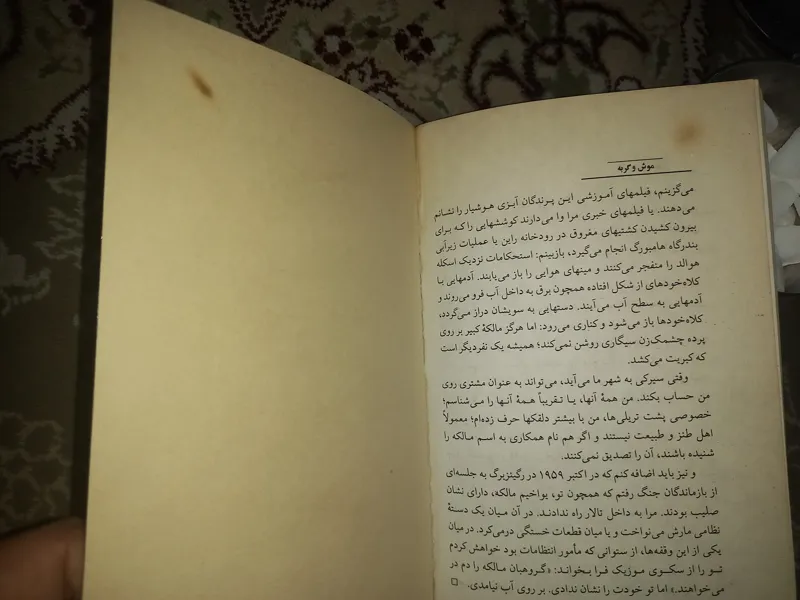 موش و گربه
می‌گزینم، فیلمهای آموزشی این پرندگان آبزی هوشیار را نشانم
می‌دهند. یا فیلمهای خبری مرا وا می‌دارند کوششهایی را که برای
بیرون کشیدن کشتیهای مغروق در رودخانه راین یا عملیات زیرآبی
بندرگاه هامبورگ انجام می‌گیرد، بازبینم: استحکامات نزدیک اسکله
هوالد را منفجر می‌کنند و مینهای هوایی را باز می‌یابند. آدمهایی با
کلاه‌خودهای از شکل افتاده همچون برق به داخل آب فرو می‌روند و
آدمهایی به سطح آب می‌آیند. دستهایی به سویشان دراز می‌گردد،
کلاه‌خودها باز می‌شود و کناری می‌رود: اما هرگز مالکهٔ کبیر بر روی
پرده چشمک‌زن سیگاری روشن نمی‌کند؛ همیشه یک نفردیگر است
که کبریت می‌کشد.
وقتی سیرکی به شهر ما می‌آید، می‌تواند به عنوان مشتری روی
من حساب بکند. من همهٔ آنها، یـا تـقریباً همهٔ آنـها را مـی‌شناسم؛
خصوصی پشت تریلی‌ها، من با بیشتر دلقکها حرف زده‌ام؛ معمولاً
اهل طنز و طبیعت نیستند و اگر هم نام همکاری به اسـم مـالکه را
شنیده باشند، آن را تصدیق نمی‌کنند.
و نیز باید اضافه کنم که در اکتبر ۱۹۵۹ در رگینزبرگ به جلسه‌ای
از بازماندگان جنگ رفتم که همچون تو، یواخیم مالکه، دارای نشان
صلیب بودند. مرا به داخل تالار راه ندادنـد. در آن مـیان یک دستهٔ
نظامی مارش می‌نواخت و یا میان قطعات خستگی درمی‌کرد. درمیان
یکی از این وقفه‌ها، از ستوانی که مأمور انتظامات بود خواهش کردم
تـو را از سـکوی مـوزیک فـرا بـخواند: «گـروهبان مـالکه را دم در
می‌خواهند.» اما تو خودت را نشان ندادی. بر روی آب نیامدی. □